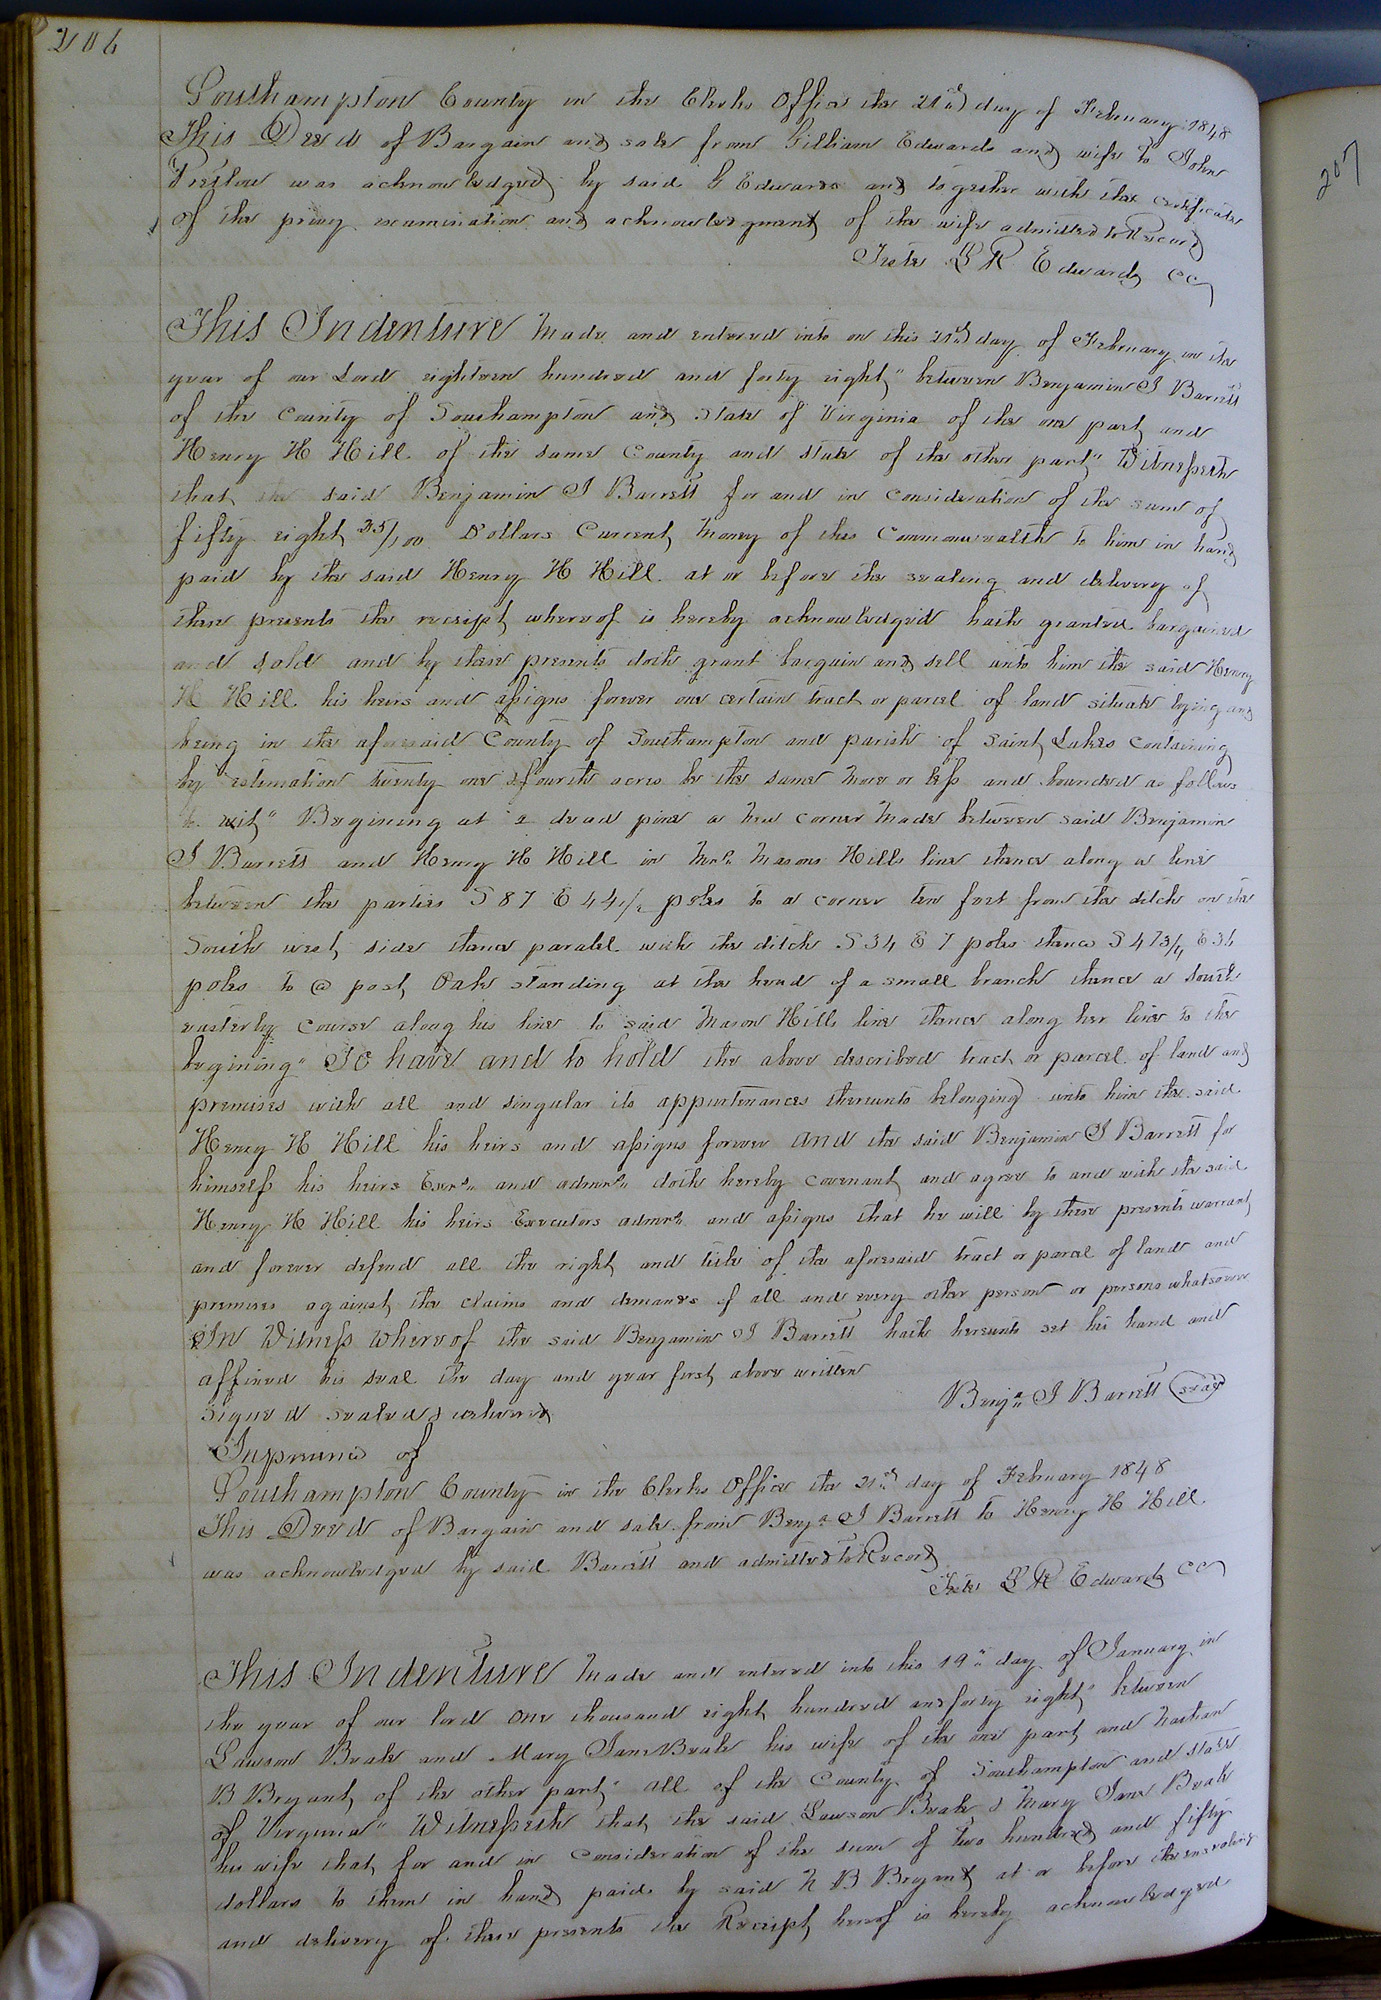 206
Southampton County in the Clerks Office the 21st day of February 1848
This Deed of Bargain and sale from Gilliam Edwards and wife to John
Pretlow was acknowledged by said G Edwards and together with the certificate
of the privy examination and acknowledgment of the wife admitted to Record
Teste L R Edwards CC
This Indenture made and entered into on this 21st day of February in the
year of our Lord eighteen hundred and forty eight" between Benjamin J Barrett
of the County of Southampton and State of Virginia of the one part and
Henry H Hill of the same County and state of the other part" Witnesseth
that the said Benjamin J Barrett for and in consideration of the sum of
fifty eight 35/100 Dollars Current money of this Commonwealth to him in hand
paid by the said Henry H Hill at or before the sealing and delivery of
these presents the receipt whereof is hereby acknowledged hath granted bargained
and sold and by these presents doth grant bargain and sell unto him the said Henry
H Hill his heirs and assigns forever one certain tract or parcel of land situate lying and
being in the aforesaid County of Southampton and parish of Saint Lukes Containing
by estimation twenty one & fourth acres be the same more or less and bounded as follows
to wit" Begining at a dead pine a new corner made between said Benjamin
J Barrett and Henry H Hill in Mrs Masons Hills line thence along a line
between the parties S 87 E 44 1/2 poles to a corner ten feet from the ditch on the
South west side thence paralel with the ditch S 34 E 7 poles thence S 47 3/4 E 36
poles to a post Oak standing at the head of a small branch thence a South
easterly course along his line to said Mason Hills line thence along her line to the
begining" To have and to hold the above described tract or parcel of land and
premises with all and singular its appurtenances thereunto belonging unto him the said
Henry H Hill his heirs and assigns forever and the said Benjamin J Barrett for
himself his heirs Exors and admrs doth hereby covenant and agree to and with the said
Henry H Hill his heirs Executors admrs and assigns that he will by these presents warrant
and forever defend all the right and title of the aforesaid tract or parcel of land and
premises against the claims and demands of all and every other person or persons whatsoever
In Witness whereof the said Benjamin J Barrett hath hereunto set his hand and
affixed his seal the day and year first above written
Benja J Barrett (seal)
Signed sealed & delivered
In presence of
Southampton County in the Clerks Office the 21st day of February 1848
This Deed of Bargain and sale from Benja J Barrett to Henry H Hill
was acknowledged by said Barrett and admitted to Record
Teste L R Edwards CC
This Indenture made and entered into this 19th day of January in
the year of our lord one thousand eight hundred and forty eight" between
Lawson Beale and Mary Jane Beale his wife of the one part and Nathan
B Bryant of the other part" all of the County of Southampton and state
of Virginia" Witnesseth that the said Lawson Beale & Mary Jane Beale
his wife that for and in consideration of the sum of two hundred and fifty
dollars to them in hand paid by said N B Bryant at or before the ensealing
and delivery of these presents the Receipt hereof is hereby acknowledged
207